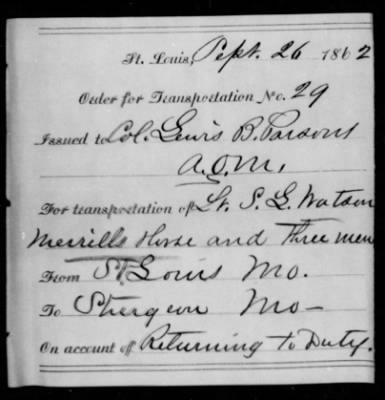 St. Louis, Sept. 26 1862
Order for Transportation No. 29
Issued to Col. Lewis B. Parsons
A.Q.M.
For transportation of Lt. S. G. Watson
Merrills Horse and Three men
From St Louis Mo.
To Sturgeon Mo -
On account of Returning to Duty.